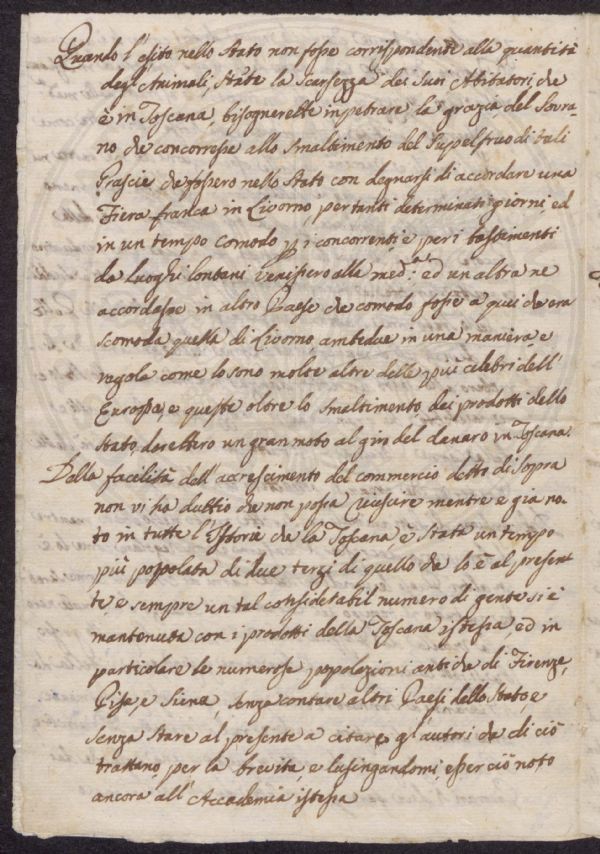 Quando l'esito nello Stato non fosse corrispondente alla quantità
degl'Animali, stàte la scarsezza dei suoi Abitatori, che
è in Toscana, bisognerebbe inpetrare la grazia del Sovra-
no che concorresse allo smaltimento del superfruo di tali
Grascie che fossero nello Stato con degnarsi di accordare una
Fiera franca in Livorno, per tanti determinati giorni, ed
in un tempo comodo p i concorrenti, e per i bastimenti
da luoghi lontani venissero alla med:a ed un altra ne
accordasse in altro Paese che comodo fosse a qui che era
scomoda quella di Livorno ambedue in una maniera, e
regola come lo sono molte altre delle più celebri dell'
Europa, e queste oltre lo smaltimento dei prodotti dello
Stato, darebbero un gran moto al giro del denaro in Toscana.
Dalla facilità dell'accrescimento del commercio detto di sopra
non vi ha dubbio che non possa riuscire mentre e gia no-
to in tutte l'Istorie che la Toscana è stata un tempo
più popolata di due terzi di quello che lo è al presen-
te, e sempre un tal considerabil numero di gente si è
mantenuta con i prodotti della Toscana istessa, ed in
particolare le numerose popolazioni antiche di Firenze,
Pisa, e Siena, senza contare altri Paesi dello Stato, e
senza stare al presente a citare gl'autori che di ciò
trattano per la brevita, e lusingandomi, esser ciò noto
ancora all'Accademia istessa